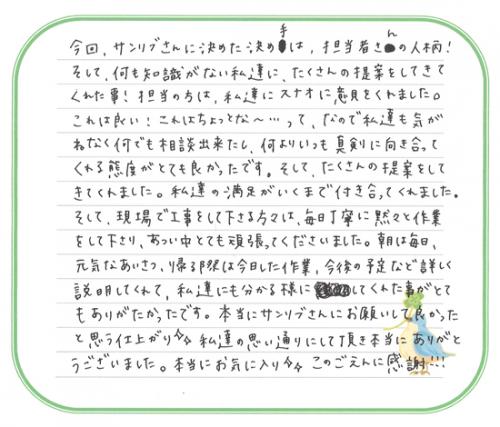 今回、サンリブさんに決めた決め手は、担当者さんの人柄！
そして、何も知識がない私達に、たくさんの提案をしてきて
くれた事！担当の方は、私達にスナオに意見をくれました。
これは良い！これはちょっとな〜…って、なので私達も気が
ねなく何でも相談出来たし、何よりいつも真剣に向き合って
くれる態度がとても良かったです。そして、たくさんの提案をして
きてくれました。私達の満足がいくまで付き合ってくれました。
そして、現場で工事をして下さる方々は、毎日丁寧に黙々と作業
をして下さり、あつい中とても頑張ってくださいました。朝は毎日、
元気なあいさつ、帰る際は今日した作業、今後の予定など詳しく
説明してくれて、私達にも分かる様にしてくれた事がとて
もありがたかったです。本当にサンリブさんにお願いして良かった
と思う仕上がり✨私達の思い通りにして頂き本当にありがと
うございました。本当にお気に入り✨このごえんに感謝!!!